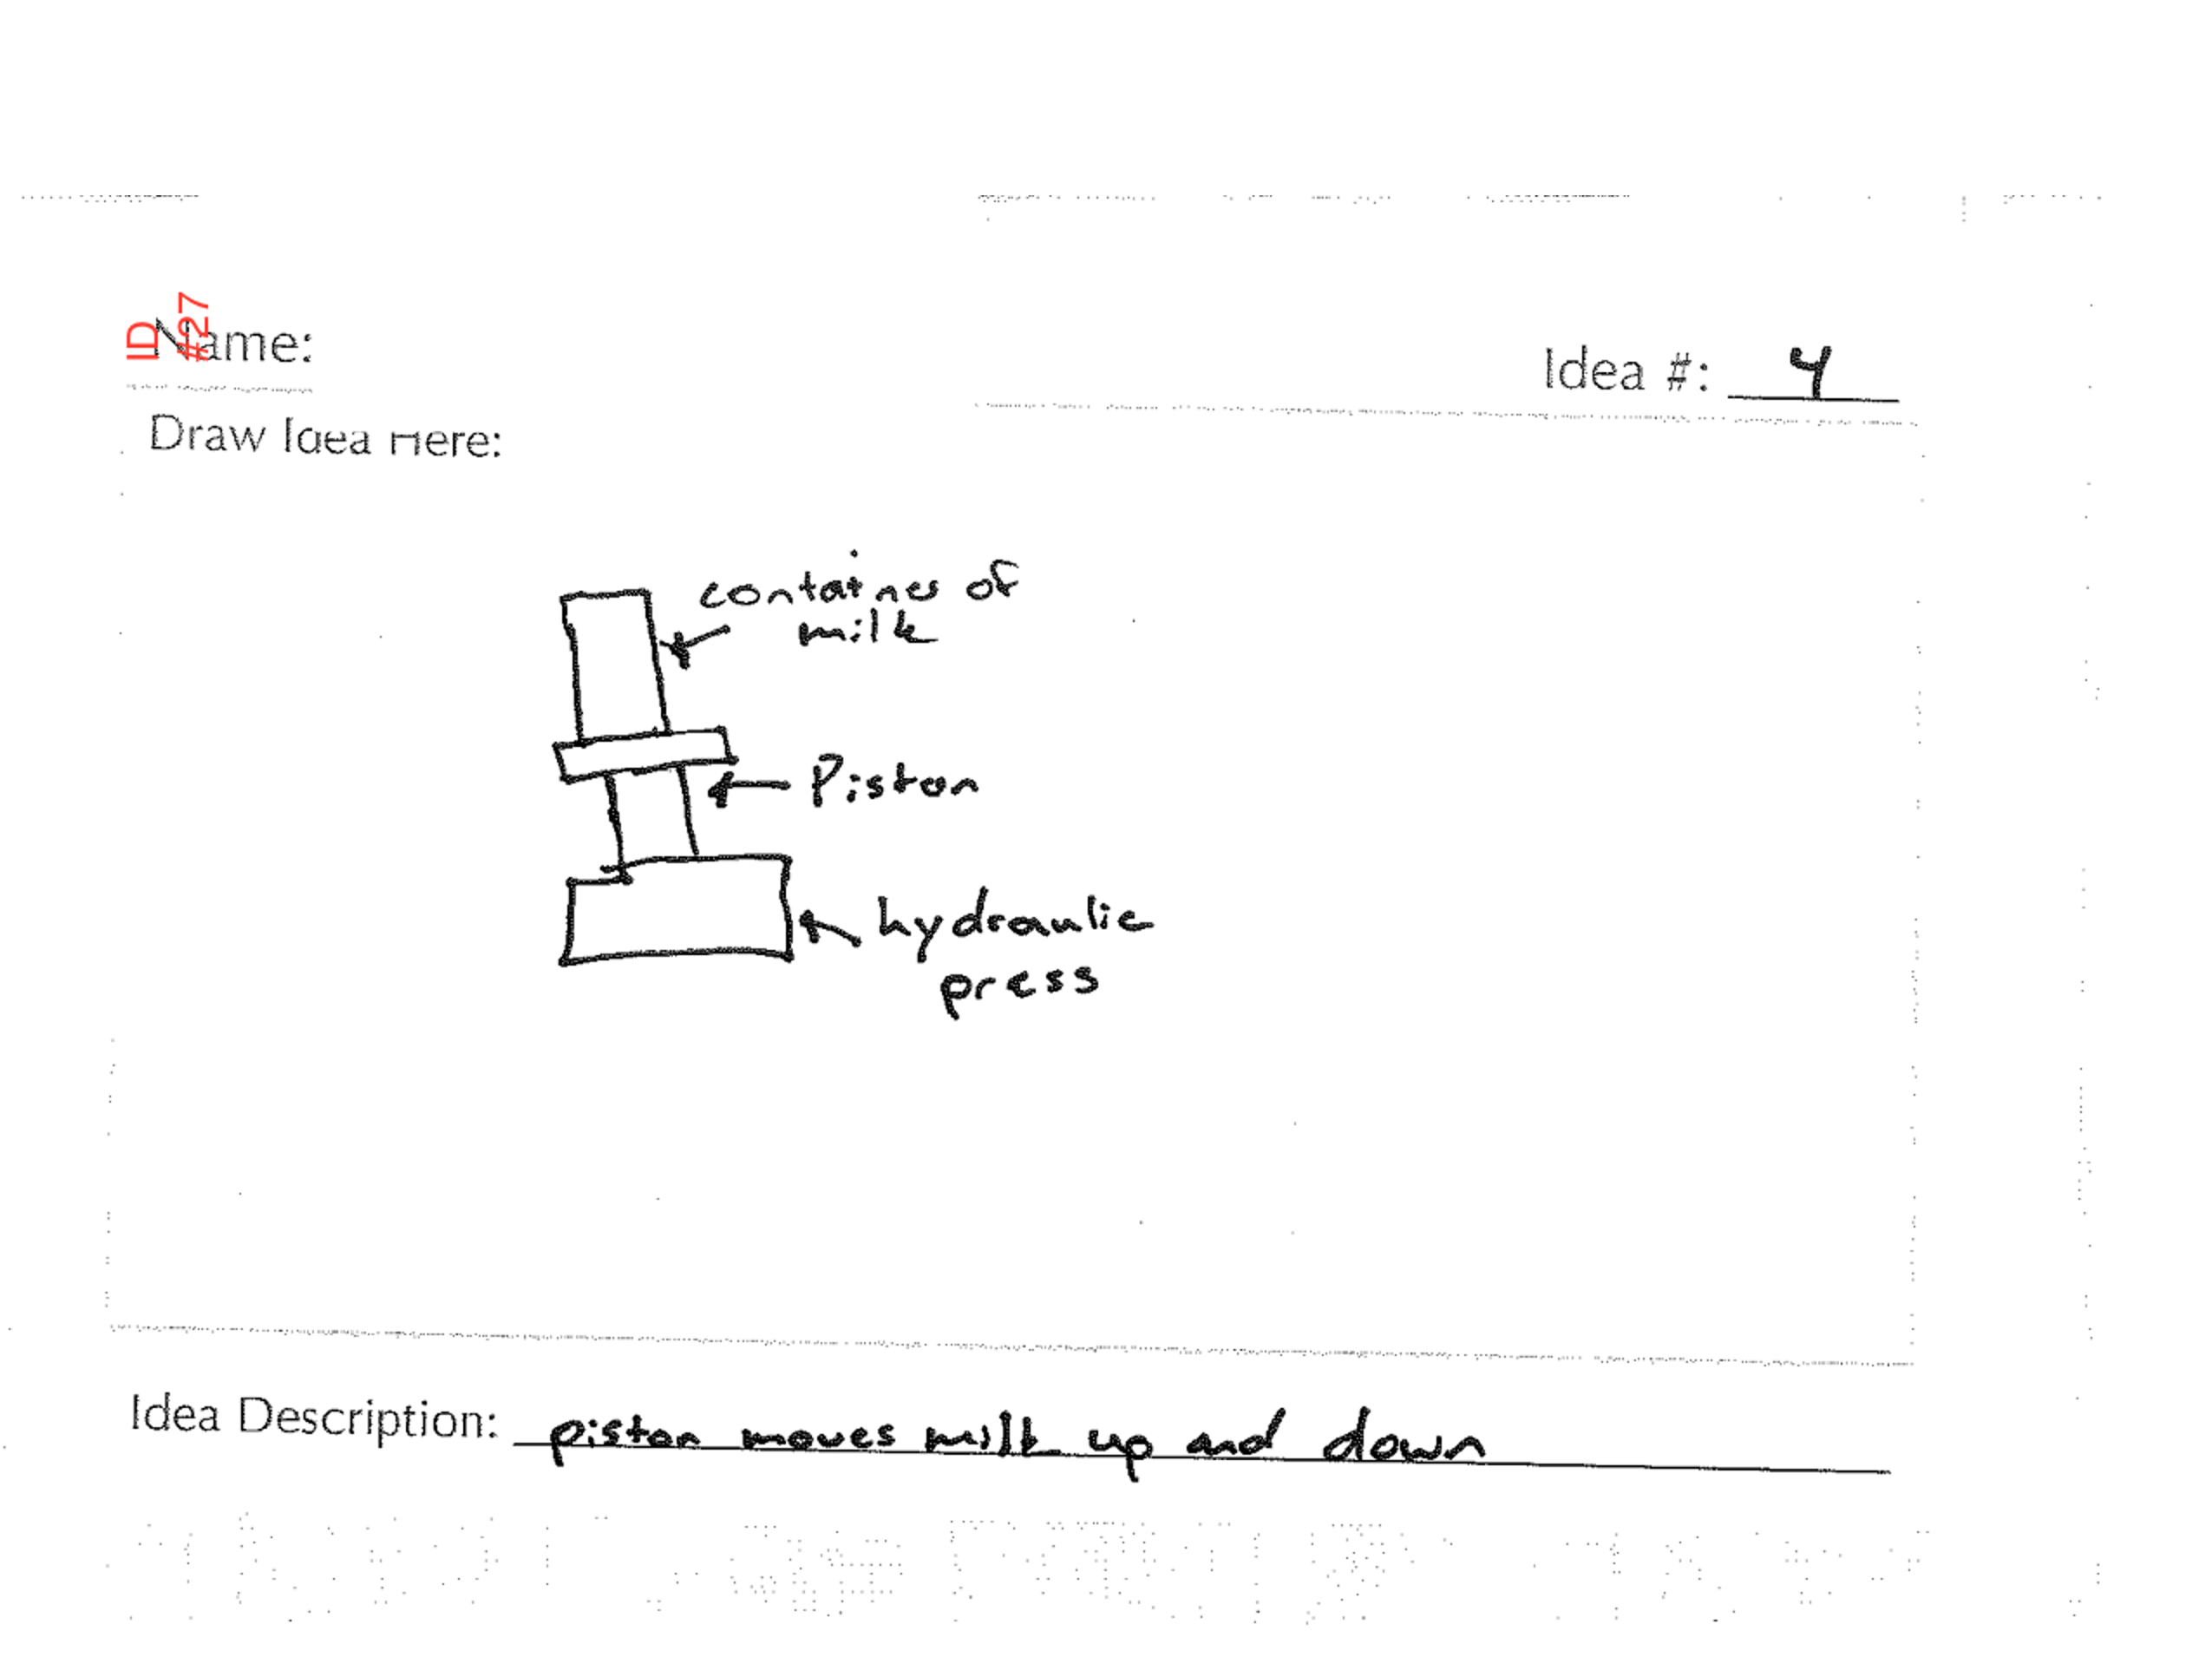 ID
#27
Name:
Idea #: 4
Draw Idea Here:
container of
milk
Piston
hydraulic
press
Idea Description: piston moves milk up and down